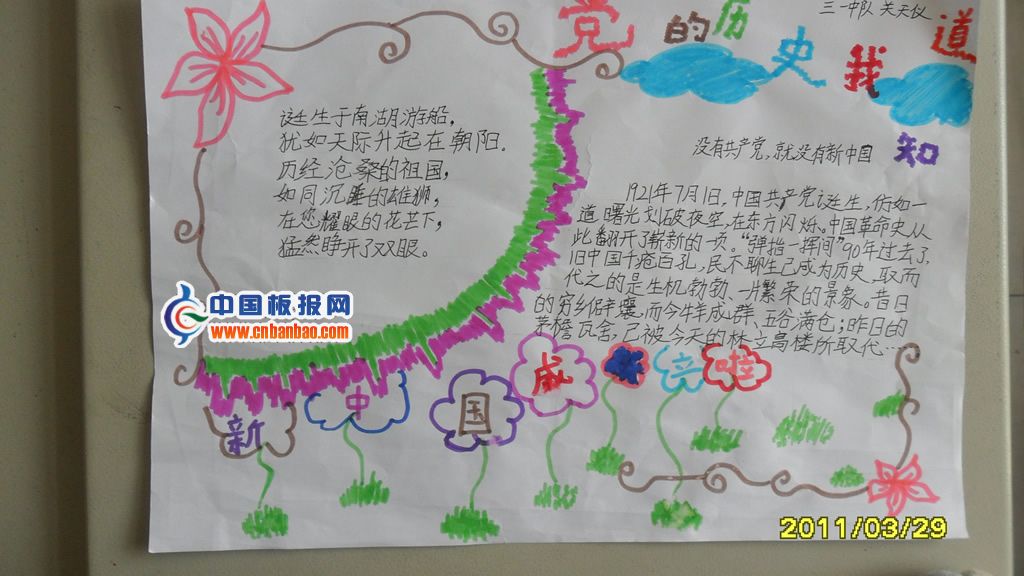 三一中队 关天仪
党的历史我知道
诞生于南湖游船，
犹如天际升起在朝阳．
历经沧桑的祖国，
如同沉睡的雄狮，
在您耀眼的花芒下，
猛然睁开了双眼。
没有共产党，就没有新中国
1921年7月1日，中国共产党诞生，仿如一
道曙光划破夜空，在东方闪烁。中国革命史从
此翻开了崭新的一页。“弹指一挥间”90年过去了，
旧中国千疮百孔，民不聊生已成为历史，取而
代之的是生机勃勃、一片繁荣的景象。昔日
的穷乡僻壤，而今牛羊成群、五谷满仓；昨日的
茅檐瓦舍，已被今天的林立高楼所取代…
中国板报网
www.cnbanbao.com
新中国成立啦
2011/03/29